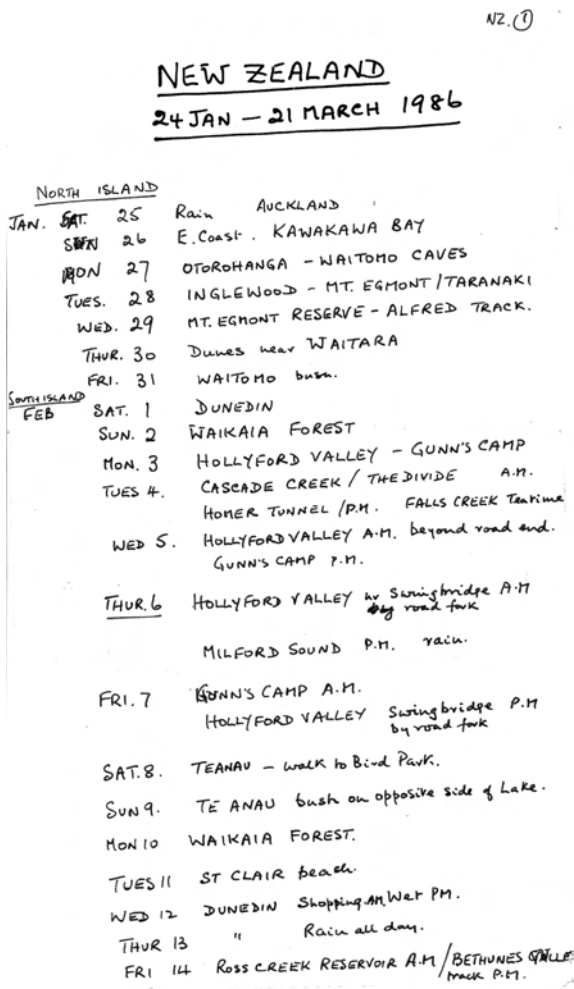 NZ. ①
NEW ZEALAND
24 JAN – 21 MARCH 1986
NORTH ISLAND
JAN. SAT. 25 Rain AUCKLAND
SUN 26 E. Coast. KAWAKAWA BAY
MON 27 OTOROHANGA – WAITOMO CAVES
TUES. 28 INGLEWOOD – MT. EGMONT / TARANAKI
WED. 29 MT. EGMONT RESERVE – ALFRED TRACK.
THUR. 30 Dunes near WAITARA
FRI. 31 WAITOMO bush.
SOUTH ISLAND
FEB SAT. 1 DUNEDIN
SUN. 2 WAIKAIA FOREST
MON. 3 HOLLYFORD VALLEY – GUNN'S CAMP
TUES 4. CASCADE CREEK / THE DIVIDE A.M.
HOMER TUNNEL / P.M. FALLS CREEK Teatime
WED 5. HOLLYFORD VALLEY A.M. beyond road end.
GUNN'S CAMP P.M.
THUR. 6 HOLLYFORD VALLEY nr Swingbridge A.M
by road fork
MILFORD SOUND P.M. rain.
FRI. 7 GUNN'S CAMP A.M.
HOLLYFORD VALLEY Swingbridge P.M
by road fork
SAT. 8. TEANAU – walk to Bird Park.
SUN 9. TE ANAU bush on opposite side of Lake.
MON 10 WAIKAIA FOREST.
TUES 11 ST CLAIR beach.
WED 12 DUNEDIN Shopping AM. Wet PM.
THUR 13 " Rain all day.
FRI 14 ROSS CREEK RESERVOIR A.M / BETHUNES
track P.M.